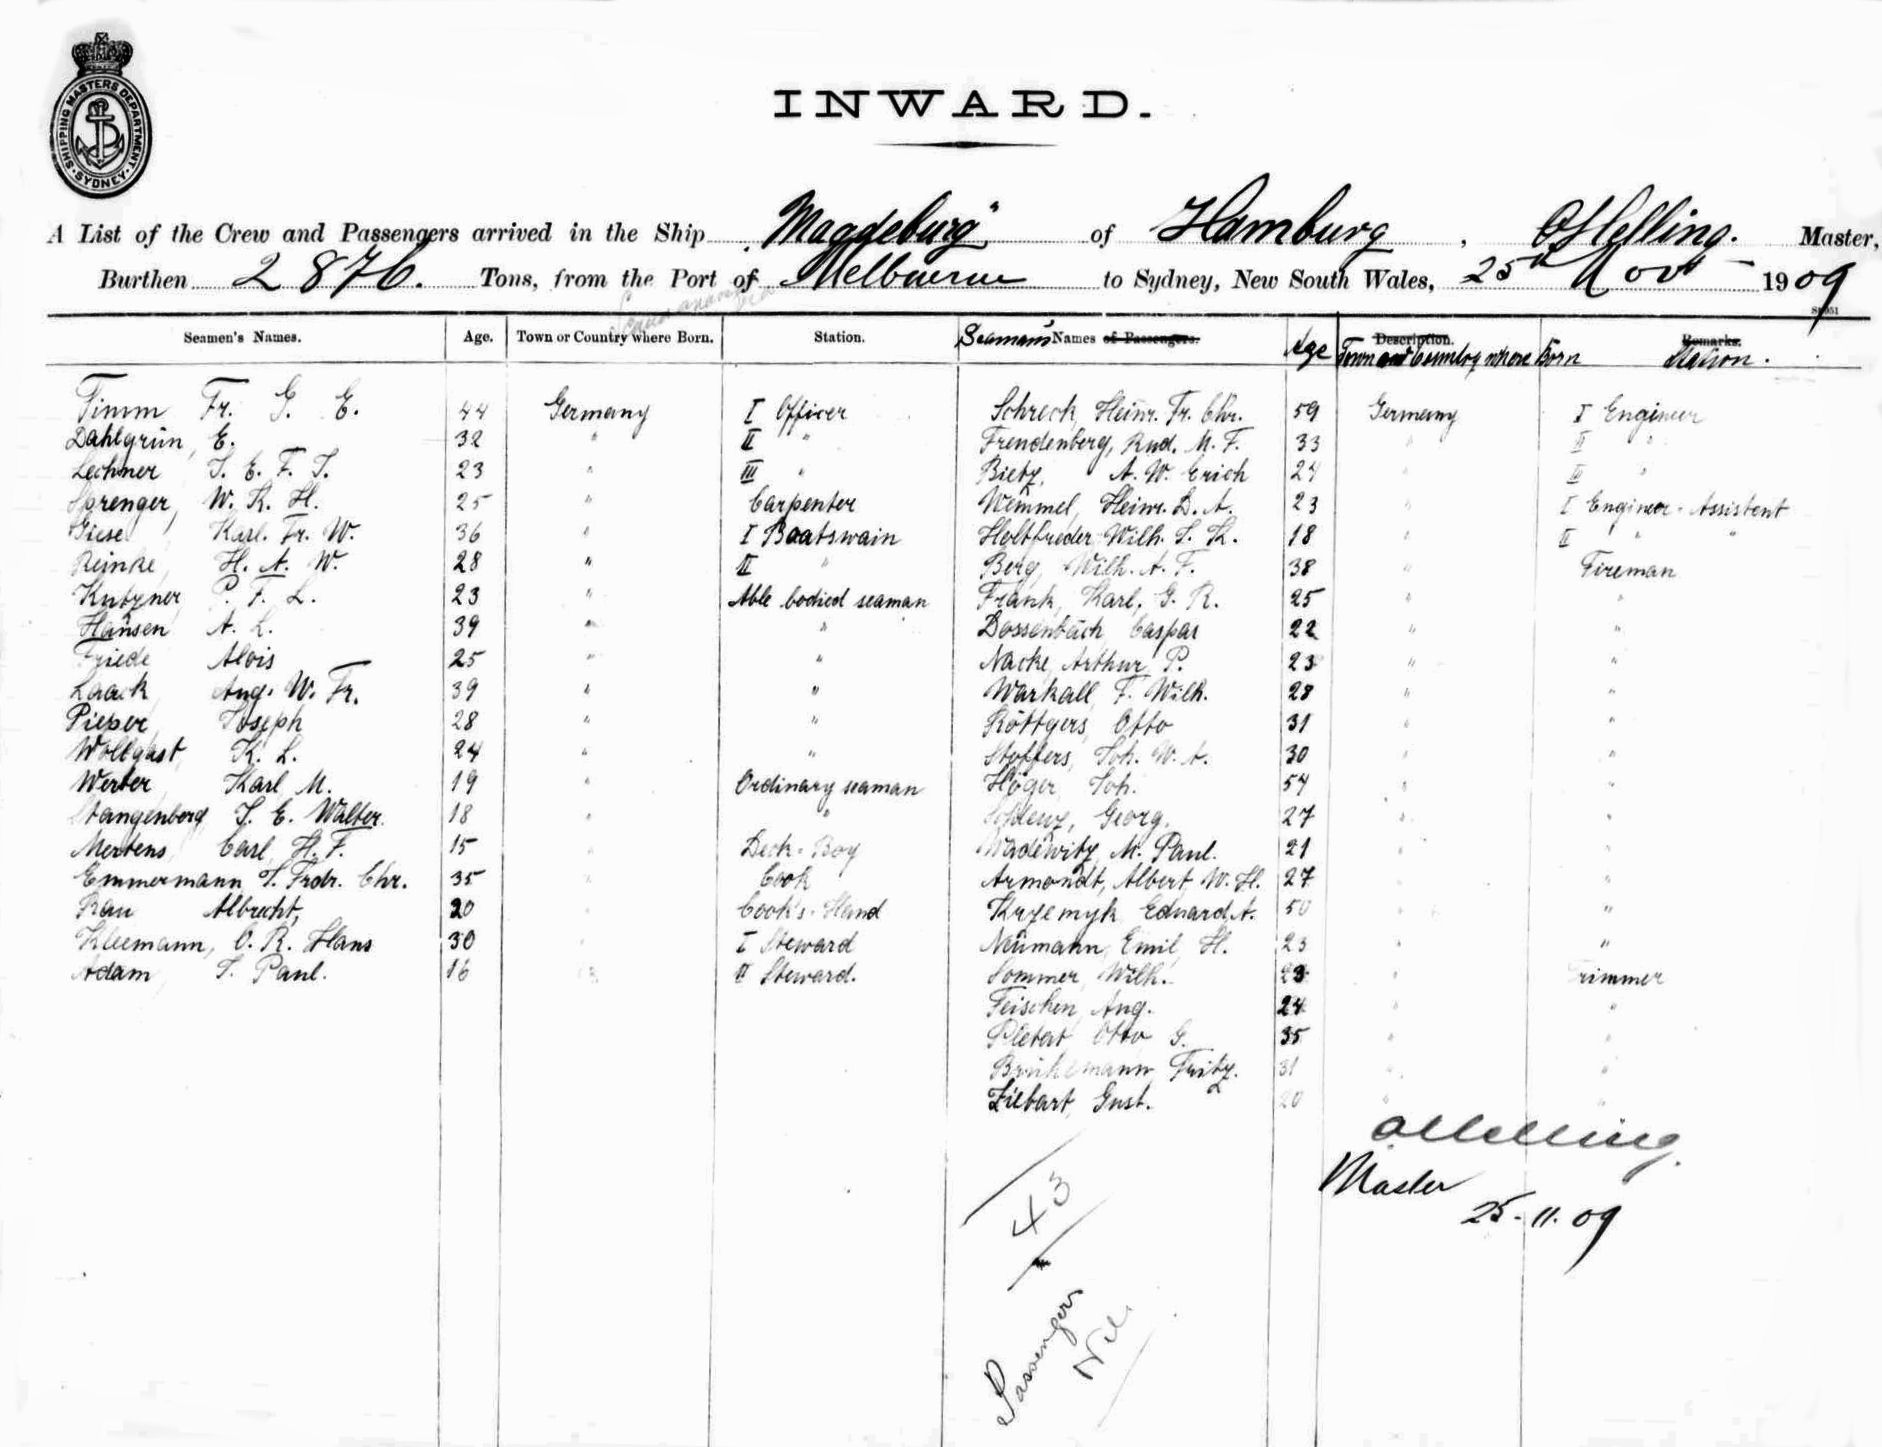 SHIPPING MASTERS DEPARTMENT. SYDNEY
INWARD.
A List of the Crew and Passengers arrived in the Ship "Magdeburg" of Hamburg, O Helling. Master,
Burthen 2876. Tons, from the Port of Melbourne to Sydney, New South Wales, 25th Nov 1909
Seamen's Names. Age. Town or Country where Born. Station. Seamen's Names of Passengers. Age Description. Town and Country where Born Remarks. Station.
Timm Fr. G. E. 44 Germany I Officer Schreck, Heinr. Fr. Chr. 59 Germany I Engineer
Dahlgrün, E. 32 " II " Freudenberg, Rud. M. F. 33 " II "
Lechner J. E. F. J. 23 " III " Bietz, A. W. Erich 24 " III "
Sprenger, W. R. H. 25 " Carpenter Wemmel, Heinr. D. A. 23 " I Engineer-Assistent
Giese, Karl. Fr. W. 36 " I Boatswain Holtfreder Wilh. J. K. 18 " II " "
Reinke, H. A. W. 28 " II " Berg, Wilh. A. F. 38 " Fireman
Kutzner P. F. L. 23 " Able bodied seaman Frank, Karl, G. R. 25 " "
Hansen A. L. 39 " " Dossenbach Caspar 22 " "
Friede Alois 25 " " Nacke, Arthur P. 23 " "
Laack Aug. W. Fr. 39 " " Warkall F. Wilh. 28 " "
Pieper, Joseph 28 " " Röttgers, Otto 31 " "
Wollgast, K. L. 24 " " Stoffers, Joh. W. A. 30 " "
Werber, Karl M. 19 " Ordinary seaman Höger Joh. 54 " "
Stangenberg J. E. Walter. 18 " " Georg. 27 " "
Mertens, Carl H. F. 15 " Deck-Boy Wadewitz, M. Paul. 21 " "
Emmermann J. Frdr. Chr. 35 " Cook Armondt, Albert W. H. 27 " "
Rau Albrecht, 20 " Cook's-Hand Krzemyk Eduard A. 50 " "
Kleemann, O. R. Hans 30 " I Steward Neumann, Emil, H. 23 " "
Adam, J. Paul. 16 " II Steward. Sommer, Wilh. 23 " Trimmer
Feischen, Aug. 24 " "
Otto G. 35 " "
Brinkemann, Fritz. 31 " "
Ziebart, Gust. 20 " "
O Helling.
Master
25-11-09
43
Passengers
Nil